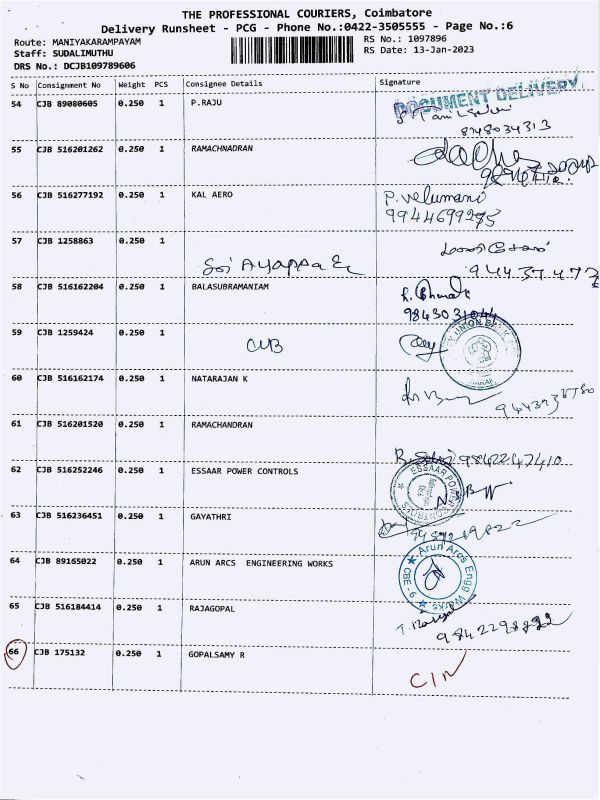 THE PROFESSIONAL COURIERS, Coimbatore
Delivery Runsheet - PCG - Phone No.:0422-3505555 - Page No.:6
Route: MANIYAKARAMPAYAM
RS No.: 1097896
Staff: SUDALIMUTHU
RS Date: 13-Jan-2023
DRS No.: DCJB109789606
S No Consignment No Weight PCS Consignee Details Signature
DOCUMENT DELIVERY
54 CJB 89080605 0.250 1 P.RAJU
8248034313
55 CJB 516201262 0.250 1 RAMACHNADRAN
56 CJB 516277192 0.250 1 KAL AERO P. Velumani
9944699295
57 CJB 1258863 0.250 1
Sri Ayappa E
58 CJB 516162204 0.250 1 BALASUBRAMANIAM
9843031044
59 CJB 1259424 0.250 1 CUB
UNION BANK
60 CJB 516162174 0.250 1 NATARAJAN K
61 CJB 516201520 0.250 1 RAMACHANDRAN
9842247410
62 CJB 516252246 0.250 1 ESSAAR POWER CONTROLS ESSAAR POWER CONTROLS
63 CJB 516236451 0.250 1 GAYATHRI
64 CJB 89165022 0.250 1 ARUN ARCS ENGINEERING WORKS Arun Arcs Engg Works
CBE - 9
65 CJB 516184414 0.250 1 RAJAGOPAL
66 CJB 175132 0.250 1 GOPALSAMY R